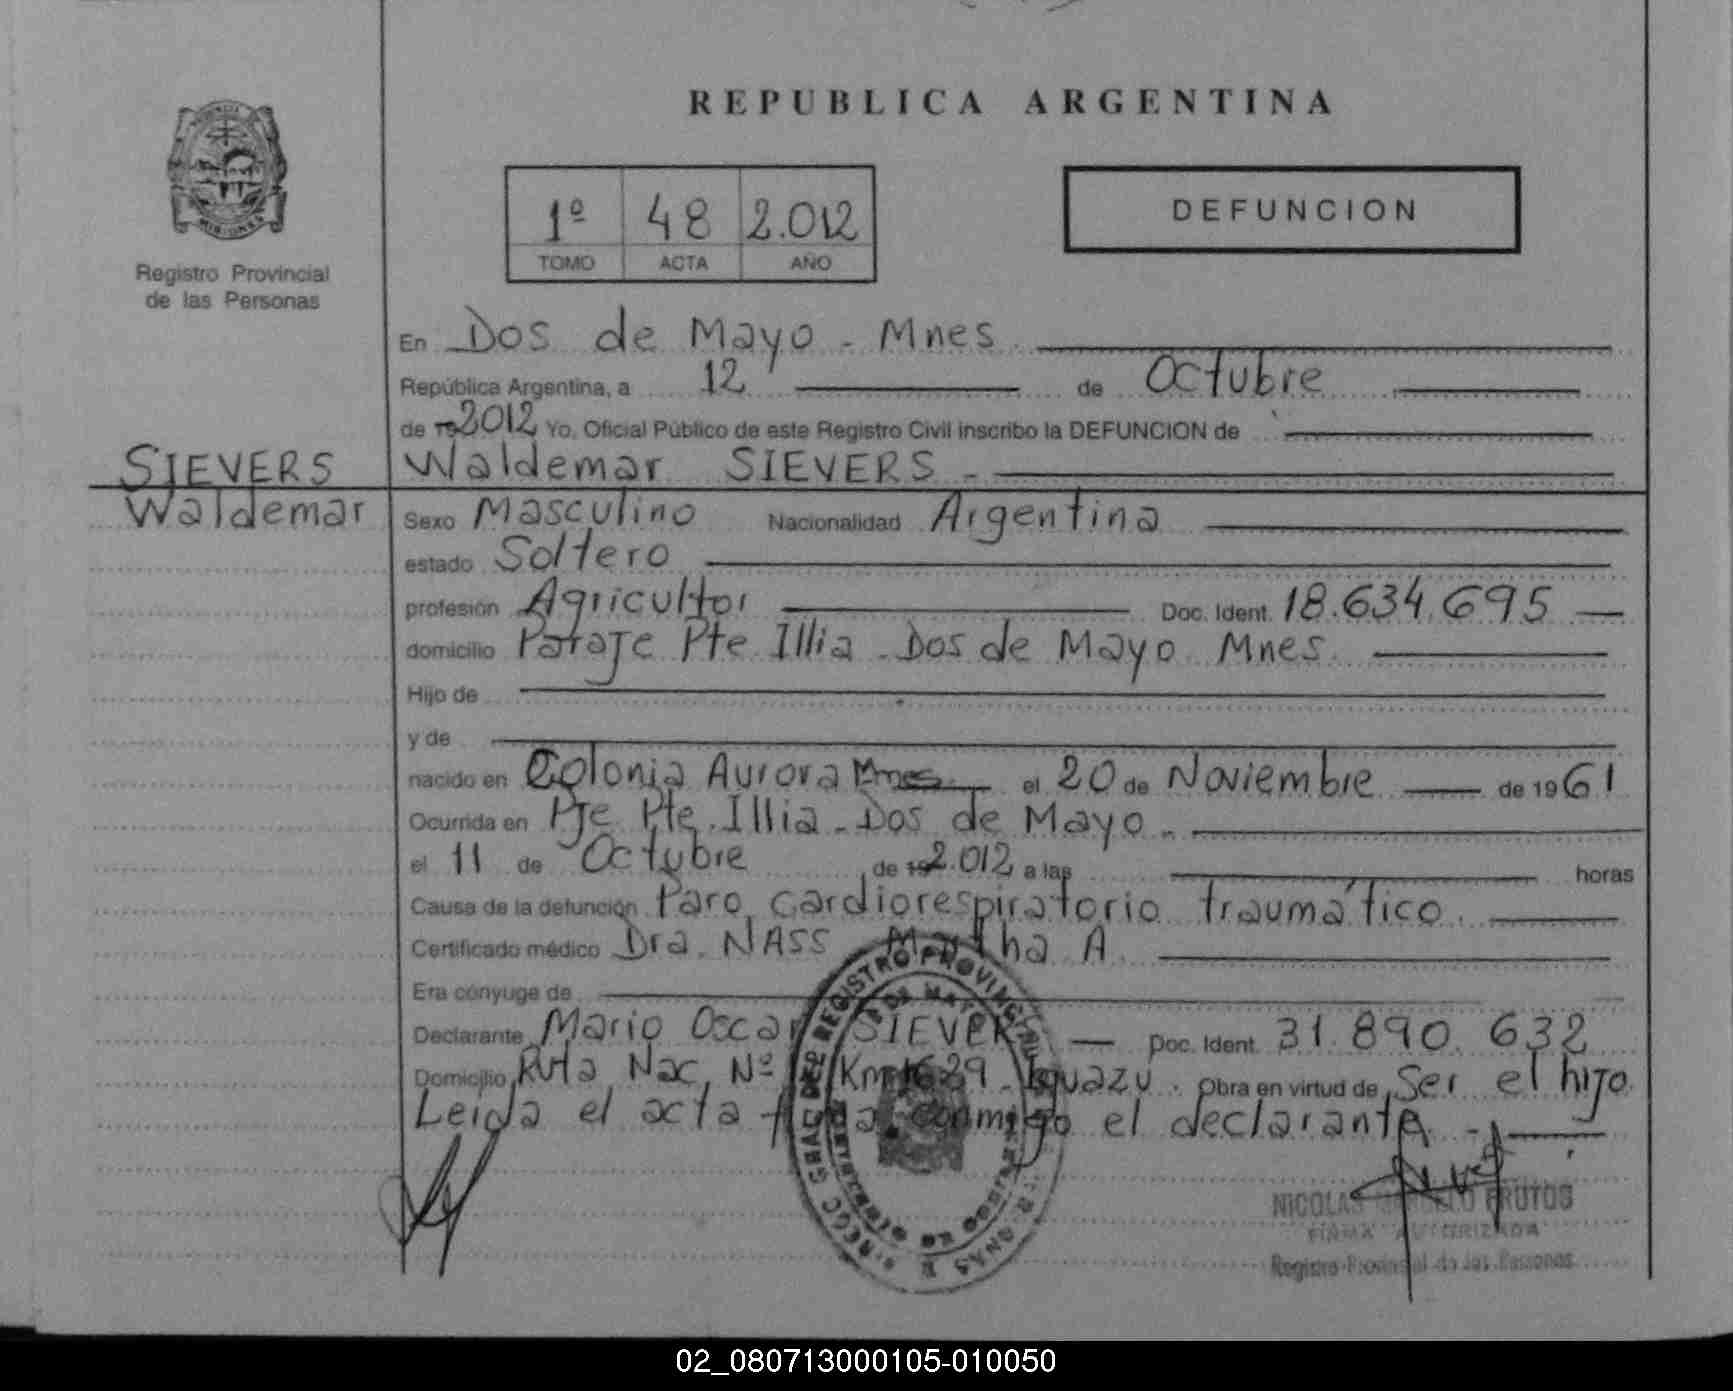 REPUBLICA ARGENTINA
Registro Provincial
de las Personas
1º 48 2.012
TOMO ACTA AÑO
DEFUNCION
En Dos de Mayo - Mnes
República Argentina, a 12 de Octubre
de 19 2012 Yo, Oficial Público de este Registro Civil inscribo la DEFUNCION de
SIEVERS
Waldemar
Waldemar SIEVERS -
Sexo Masculino Nacionalidad Argentina
estado Soltero
profesión Agricultor Doc. Ident. 18.634.695
domicilio Paraje Pte Illia - Dos de Mayo Mnes.
Hijo de
y de
nacido en Colonia Aurora Mnes el 20 de Noviembre de 1961
Ocurrida en Pje Pte. Illia - Dos de Mayo -
el 11 de Octubre de 19 2.012 a las horas
Causa de la defunción Paro cardiorespiratorio traumático.
Certificado médico Dra. NASS Martha A.
Era cónyuge de
Declarante Mario Oscar SIEVER Doc. Ident. 31.890.632
Domicilio Ruta Nac. Nº Km 1629 - Iguazu. Obra en virtud de Ser el hijo
Leida el acta conmigo el declarante -
REGISTRO PROVINCIAL
2 DE MAYO
NICOLAS FRUTOS
FIRMA AUTORIZADA
Registro Provincial de las Personas
02_080713000105-010050